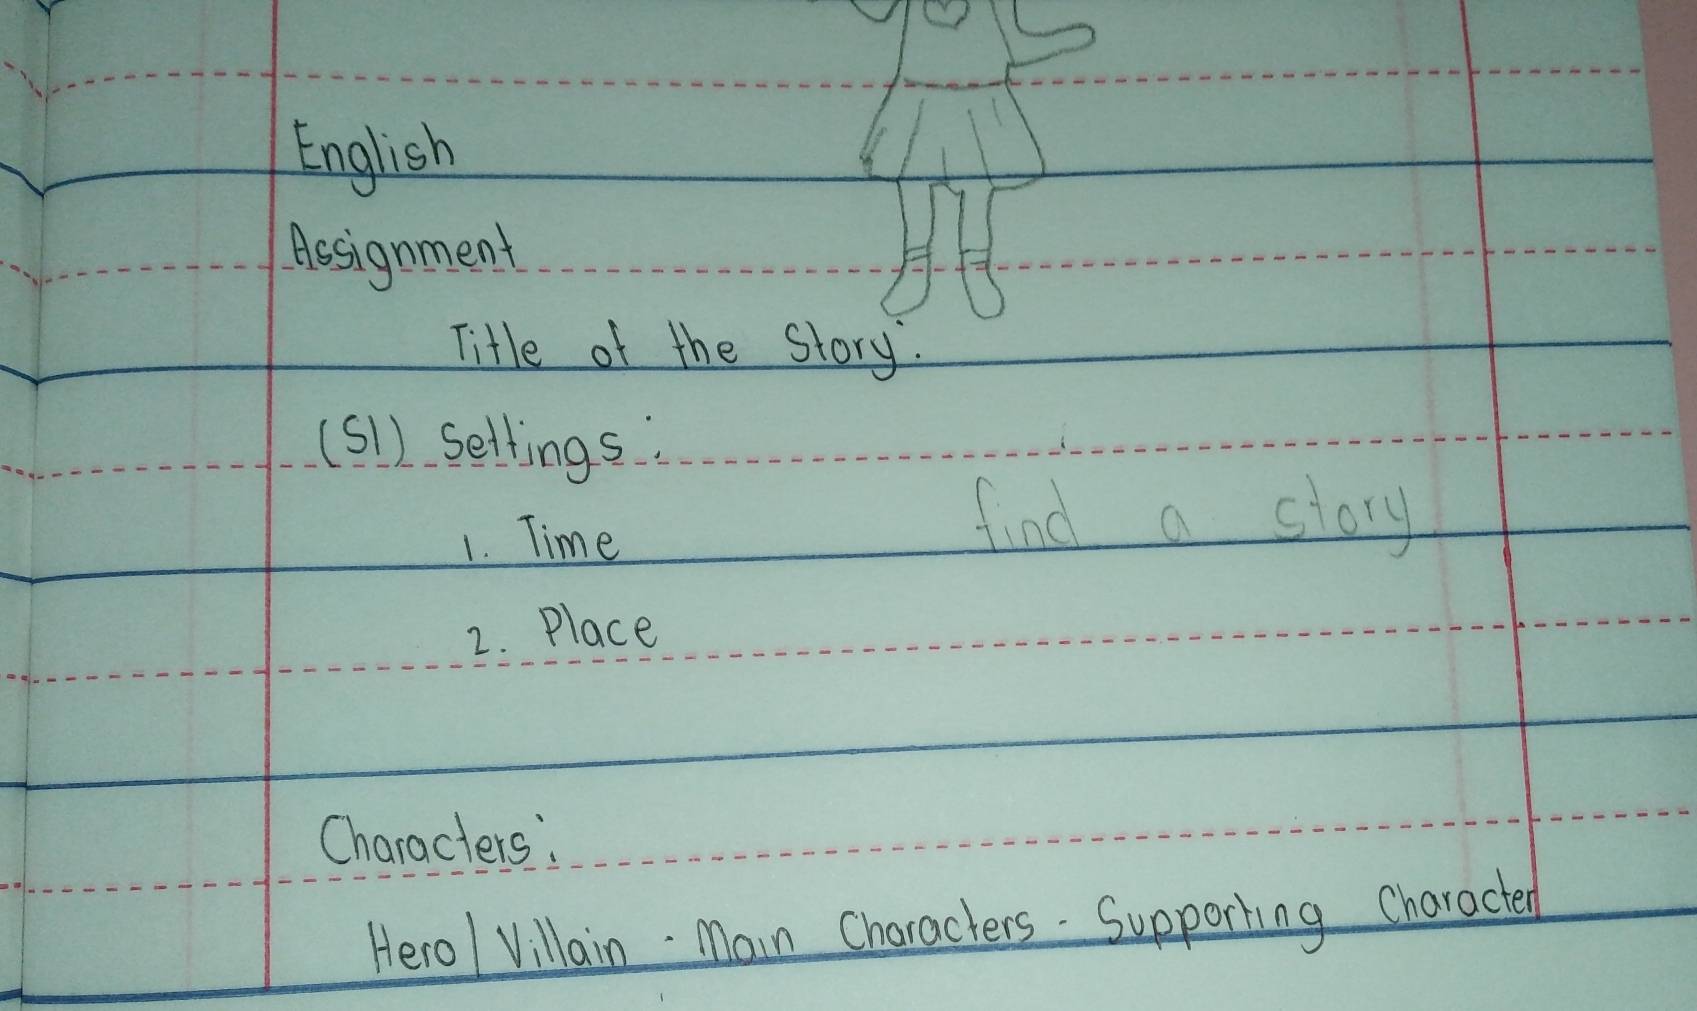 English
Assignment
Title of the Story:
(S1) Settings:
1. Time
find a story
2. Place
Characters:
Hero/Villain - Main Characters - Supporting Character